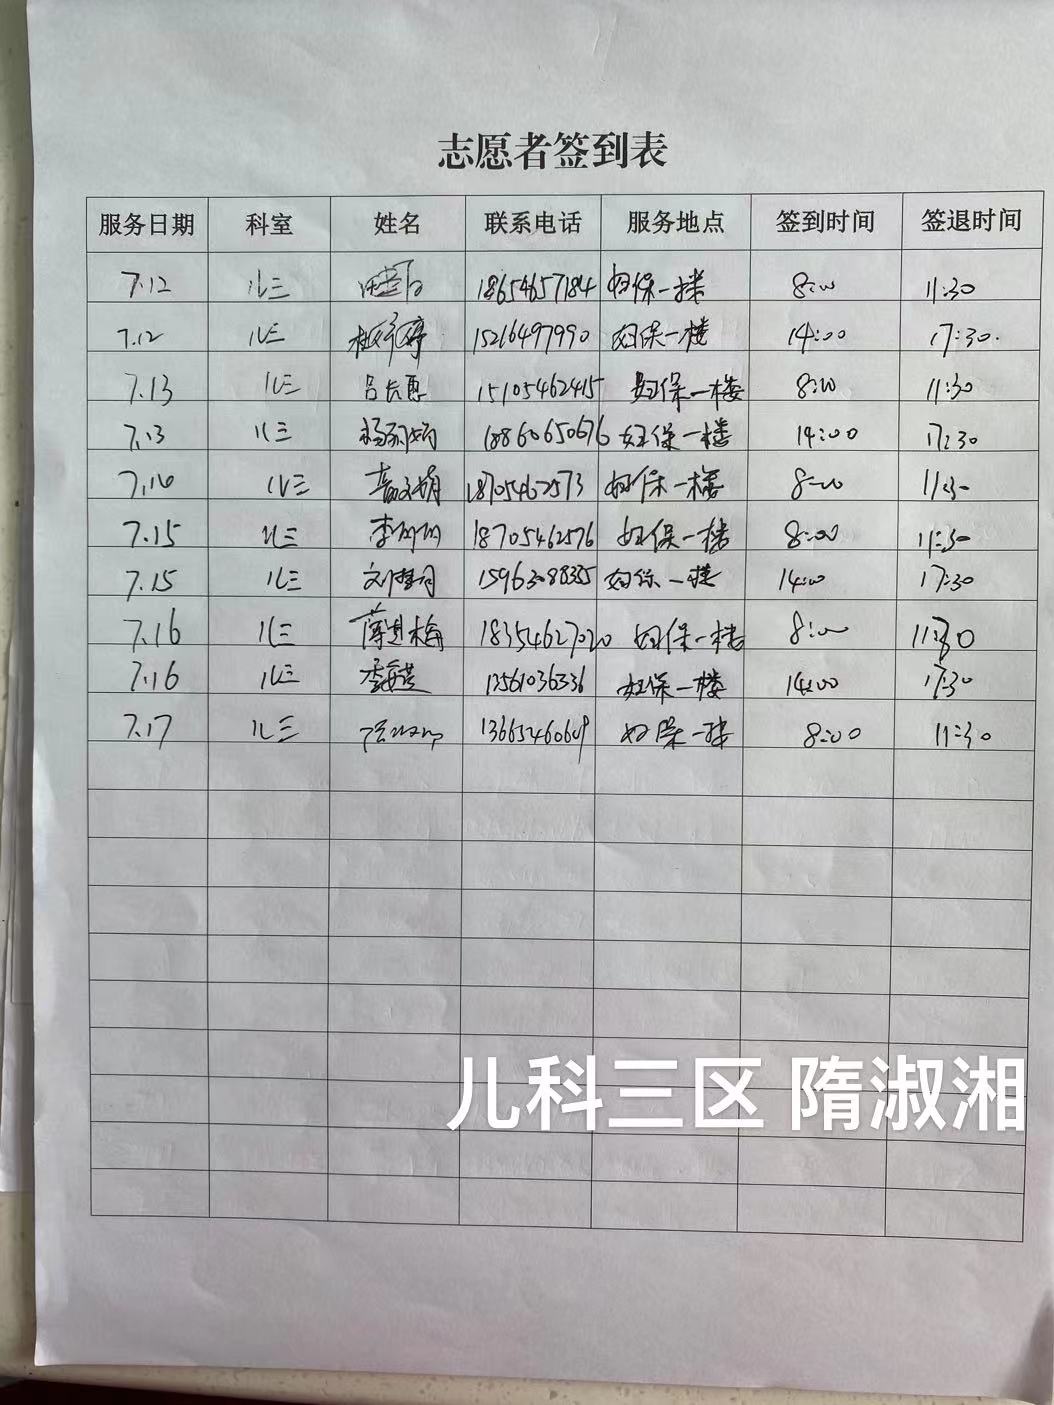 志愿者签到表
服务日期 科室 姓名 联系电话 服务地点 签到时间 签退时间
7.12 儿三 18654657184 妇保一楼 8:00 11:30
7.12 儿三 15216497990 妇保一楼 14:00 17:30.
7.13 儿三 吕长惠 15105462415 妇保一楼 8:00 11:30
7.13 儿三 18860650676 妇保一楼 14:00 17:30
儿三 18705462573 妇保一楼 8:00 11:30
7.15 儿三 李丽丽 18705462576 妇保一楼 8:00 11:30
7.15 儿三 妇保一楼 14:00 17:30
7.16 儿三 薄其梅 18354627020 妇保一楼 8:00 11:30
7.16 儿三 13561036336 妇保一楼 14:00 17:30
7.17 儿三 妇保一楼 8:00 11:30
儿科三区 隋淑湘